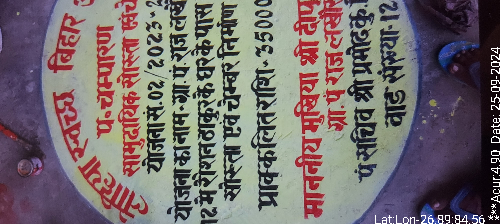 लोहिया स्वच्छ बिहार
प. चम्पारण
सामुदायिक सोख्ता
योजना सं. 02/2023-2
योजना का नाम- ग्रा. पं. राज लक्ष्मी
12 में रोशन ठाकुर के घर के पास
सोख्ता एवं चेम्बर निर्माण
प्राक्कलित राशि- 35000
माननीय मुखिया श्री दीपू
ग्रा. पं. राज
पं. सचिव श्री प्रमोद कु.
वार्ड संख्या-12
Lat:Lon-26.89:84.56
Date:25-09-2024